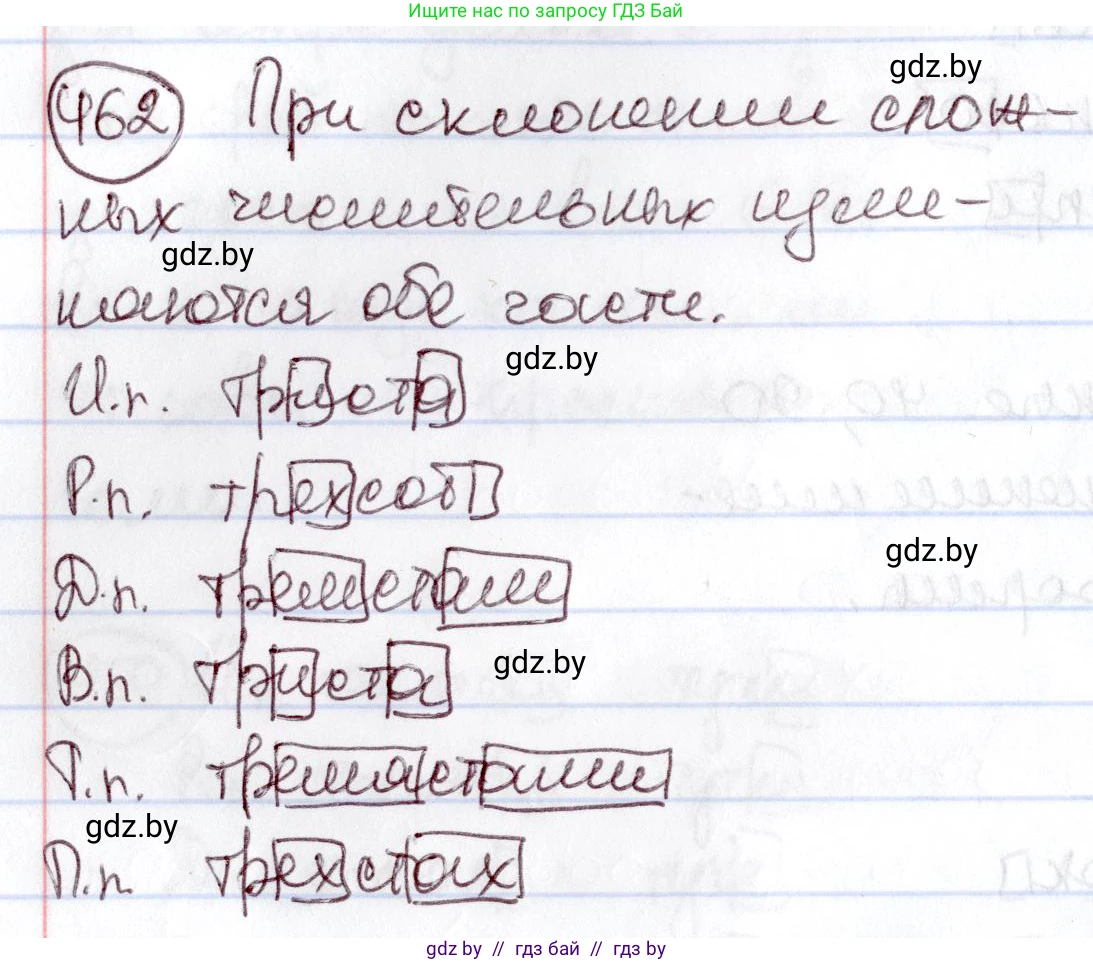 Ищите нас по запросу ГДЗ Бай
462 При склонении слож-
gdz.by
ных числительных изме-
gdz.by
няются обе части.
gdz.by
И.п. триста
Р.п. трехсот
gdz.by
gdz.by
Д.п. тремстам
В.п. триста
gdz.by
Т.п. тремястами
gdz.by
П.п. трехстах
gdz.by // гдз бай // гдз by